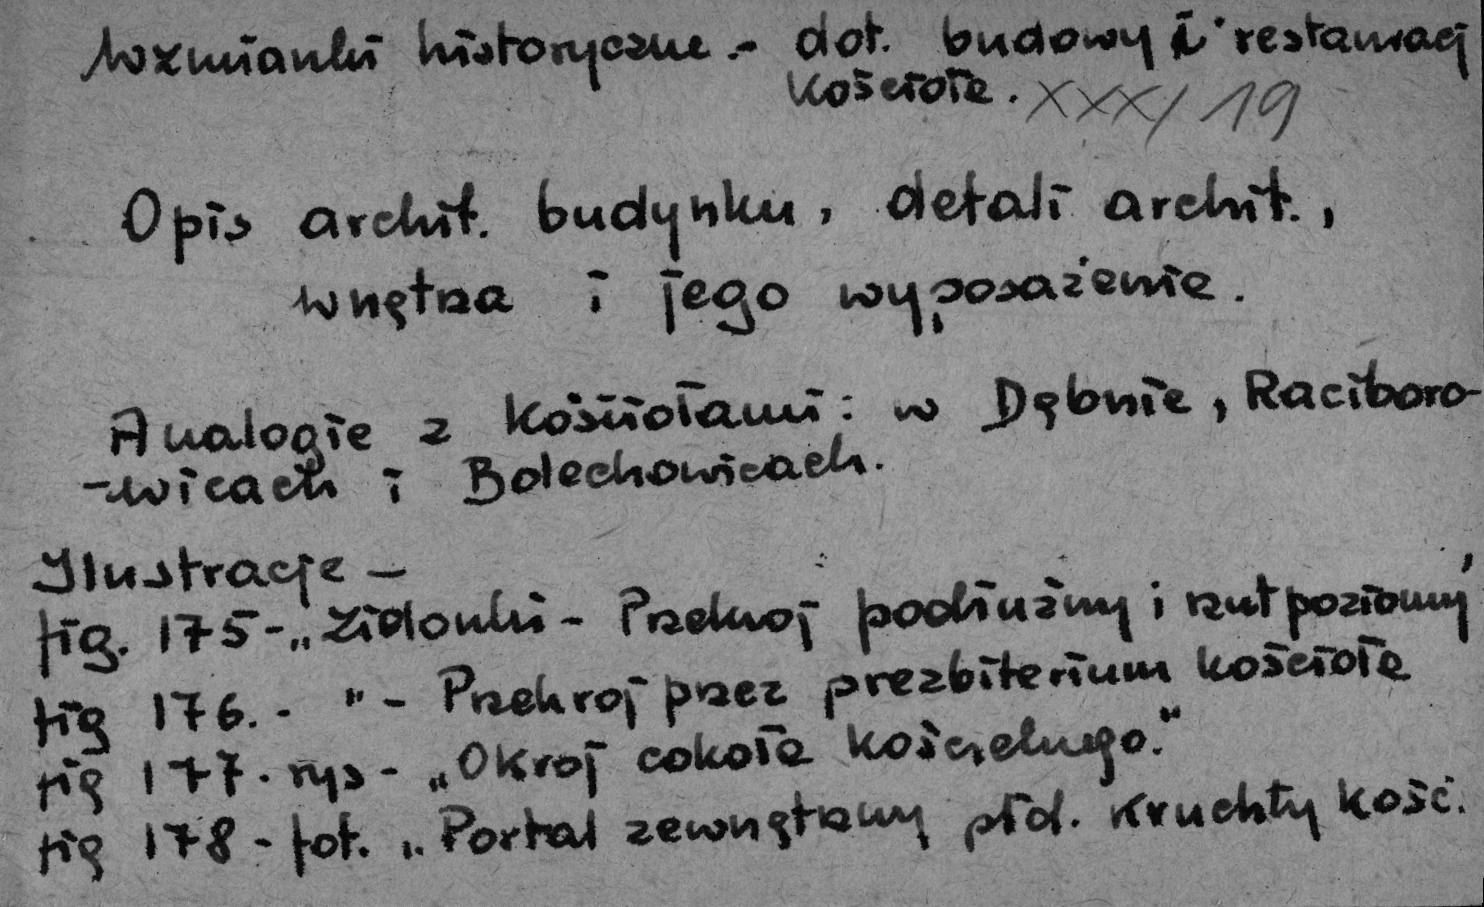 Wzmianki historyczne. - dot. budowy i restauracji
Kościoła. XXX/19
Opis archit. budynku, detali archit.,
wnętrza i jego wyposażenie.
Analogie z kościołami: w Dębnie, Raciboro-
-wicach i Bolechowicach.
Ilustracje -
fig. 175 - „Zidonki - Przekrój podłużny i rzut poziomy
fig 176. - " - Przekrój przez prezbiterium kościoła
fig 177. rys - „Okrój cokołu kościelnego."
fig 178 - fot. „Portal zewnętrzny płd. kruchty kość.